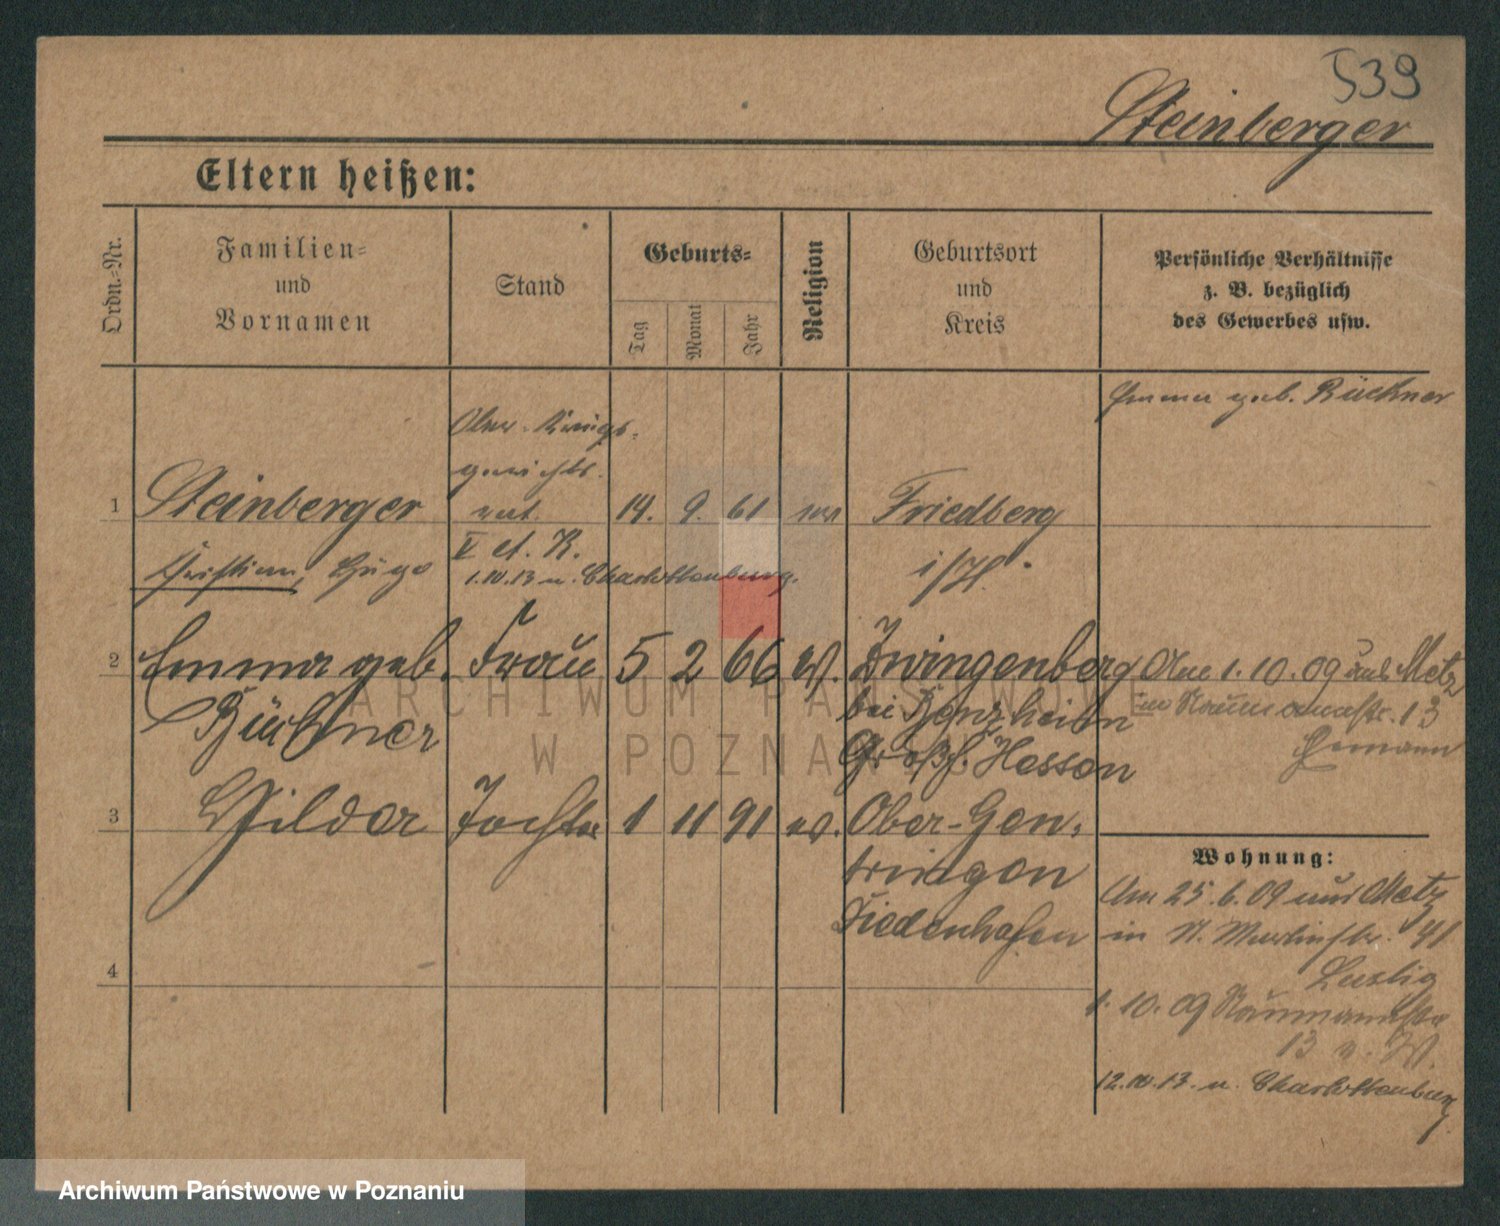 539
Steinberger
Eltern heißen:
Ordn.-Nr.
Familien-
und
Vornamen
Stand
Geburts-
Tag
Monat
Jahr
Religion
Geburtsort
und
Kreis
Persönliche Verhältnisse
z. B. bezüglich
des Gewerbes usw.
Emma geb. Büchner
Ober-Kriegs-
gerichts-
1 Steinberger rat 14. 9. 61 ev Friedberg
Christian, Hugo V. A. K. i/H.
1.10.13 n. Charlottenburg.
2 Emma geb. Frau 5 2 66 ev. Zwingenberg Am 1.10.09 aus Metz
Büchner bei Benzheim in Naumannstr. 13
Großh. Hessen Ehemann
3 Hilda Tochter 1 11 91 ev. Ober-Gen-
tringen
Diedenhofen
4
Wohnung:
Am 25.6.09 aus Metz
in St. Martinstr. 41
1.10.09 Naumannstr
13 b. W.
12.10.13. n. Charlottenburg
ARCHIWUM PAŃSTWOWE
W POZNANIU
Archiwum Państwowe w Poznaniu